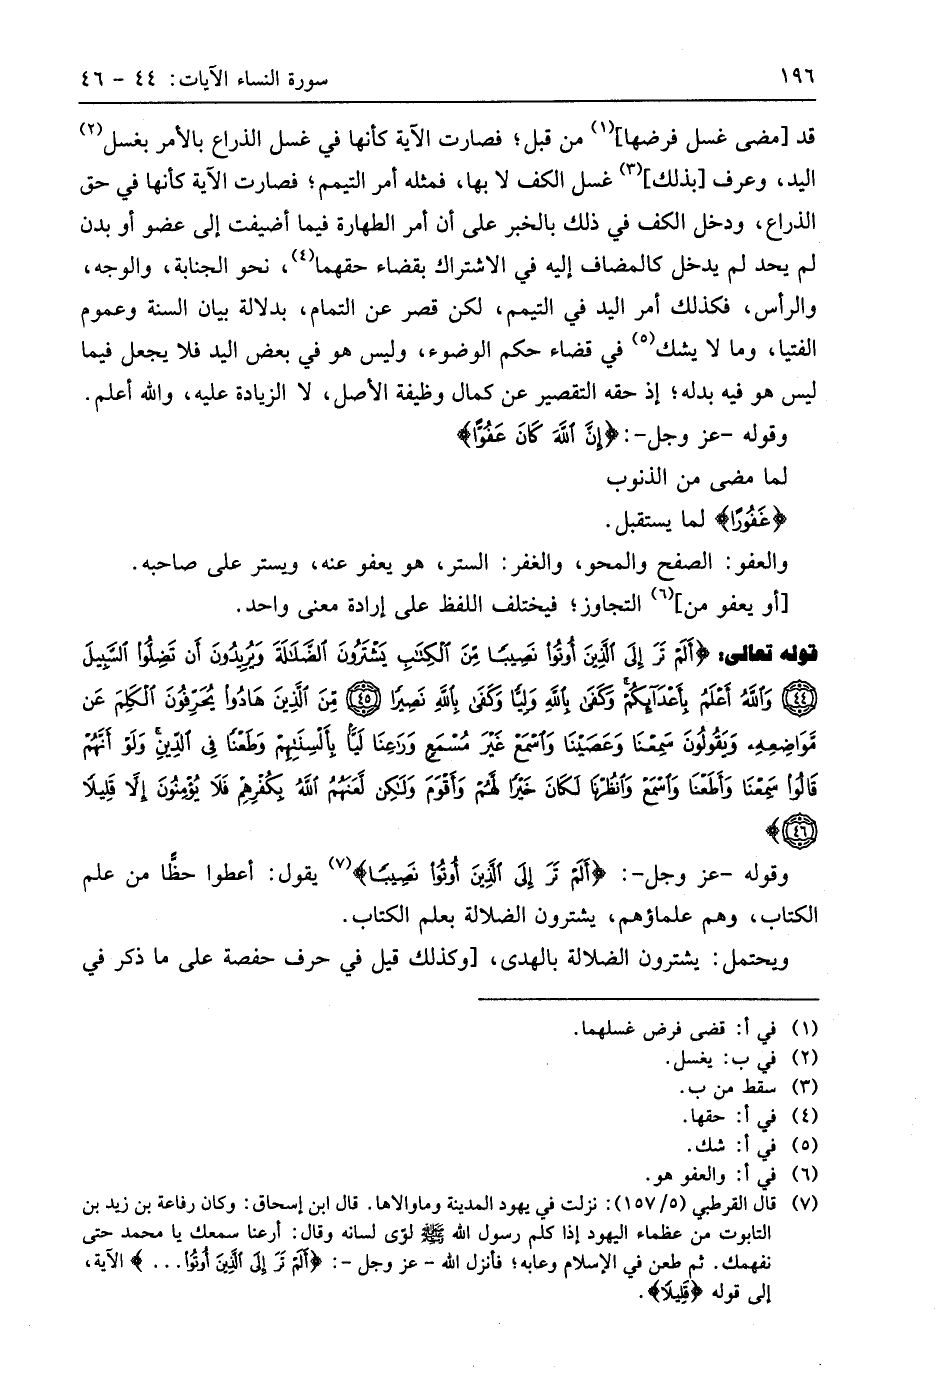 ١٩٦ سورة النساء الآيات: ٤٤ - ٤٦
قد [مضى غسل فرضها](١) من قبل؛ فصارت الآية كأنها في غسل الذراع بالأمر بغسل(٢)
اليد، وعرف [بذلك](٣) غسل الكف لا بها، فمثله أمر التيمم؛ فصارت الآية كأنها في حق
الذراع، ودخل الكف في ذلك بالخبر على أن أمر الطهارة فيما أضيفت إلى عضو أو بدن
لم يحد لم يدخل كالمضاف إليه في الاشتراك بقضاء حقهما(٤)، نحو الجنابة، والوجه،
والرأس، فكذلك أمر اليد في التيمم، لكن قصر عن التمام، بدلالة بيان السنة وعموم
الفتيا، وما لا يشك(٥) في قضاء حكم الوضوء، وليس هو في بعض اليد فلا يجعل فيما
ليس هو فيه بدله؛ إذ حقه التقصير عن كمال وظيفة الأصل، لا الزيادة عليه، والله أعلم.
وقوله -عز وجل-: ﴿إِنَّ ٱللَّهَ كَانَ عَفُوًّا﴾
لما مضى من الذنوب
﴿غَفُورًا﴾ لما يستقبل.
والعفو: الصفح والمحو، والغفر: الستر، هو يعفو عنه، ويستر على صاحبه.
[أو يعفو من](٦) التجاوز؛ فيختلف اللفظ على إرادة معنى واحد.
قوله تعالى: ﴿أَلَمۡ تَرَ إِلَى ٱلَّذِينَ أُوتُواْ نَصِيبًا مِّنَ ٱلۡكِتَٰبِ يَشۡتَرُونَ ٱلضَّلَٰلَةَ وَيُرِيدُونَ أَن تَضِلُّواْ ٱلسَّبِيلَ
﴿٤٤﴾ وَٱللَّهُ أَعۡلَمُ بِأَعۡدَآئِكُمۡۚ وَكَفَىٰ بِٱللَّهِ وَلِيًّا وَكَفَىٰ بِٱللَّهِ نَصِيرًا ﴿٤٥﴾ مِّنَ ٱلَّذِينَ هَادُواْ يُحَرِّفُونَ ٱلۡكَلِمَ عَن
مَّوَاضِعِهِۦ وَيَقُولُونَ سَمِعۡنَا وَعَصَيۡنَا وَٱسۡمَعۡ غَيۡرَ مُسۡمَعٍ وَرَٰعِنَا لَيًّۢا بِأَلۡسِنَتِهِمۡ وَطَعۡنًا فِي ٱلدِّينِۚ وَلَوۡ أَنَّهُمۡ
قَالُواْ سَمِعۡنَا وَأَطَعۡنَا وَٱسۡمَعۡ وَٱنظُرۡنَا لَكَانَ خَيۡرًا لَّهُمۡ وَأَقۡوَمَ وَلَٰكِن لَّعَنَهُمُ ٱللَّهُ بِكُفۡرِهِمۡ فَلَا يُؤۡمِنُونَ إِلَّا قَلِيلًا
﴿٤٦﴾﴾
وقوله -عز وجل-: ﴿أَلَمۡ تَرَ إِلَى ٱلَّذِينَ أُوتُواْ نَصِيبًا﴾(٧) يقول: أعطوا حظًّا من علم
الكتاب، وهم علماؤهم، يشترون الضلالة بعلم الكتاب.
ويحتمل: يشترون الضلالة بالهدى، [وكذلك قيل في حرف حفصة على ما ذكر في
(١) في أ: قضى فرض غسلهما.
(٢) في ب: يغسل.
(٣) سقط من ب.
(٤) في أ: حقها.
(٥) في أ: شك.
(٦) في أ: والعفو هو.
(٧) قال القرطبي (١٥٧/٥): نزلت في يهود المدينة وماوالاها. قال ابن إسحاق: وكان رفاعة بن زيد بن
التابوت من عظماء اليهود إذا كلم رسول الله ﷺ لوّى لسانه وقال: أرعنا سمعك يا محمد حتى
نفهمك. ثم طعن في الإسلام وعابه؛ فأنزل الله - عز وجل -: ﴿أَلَمۡ تَرَ إِلَى ٱلَّذِينَ أُوتُواْ... ﴾ الآية،
إلى قوله ﴿قَلِيلًا﴾.